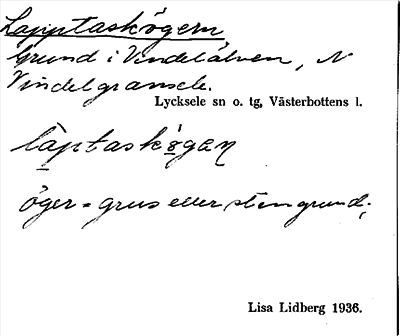 Lapptaskögern
Grund i Vindelälven, N
Vindelgransele.
Lycksele sn o. tg, Västerbottens l.
làptaskö̀gaṇ
öger = grus eller stengrund;
Lisa Lidberg 1936.